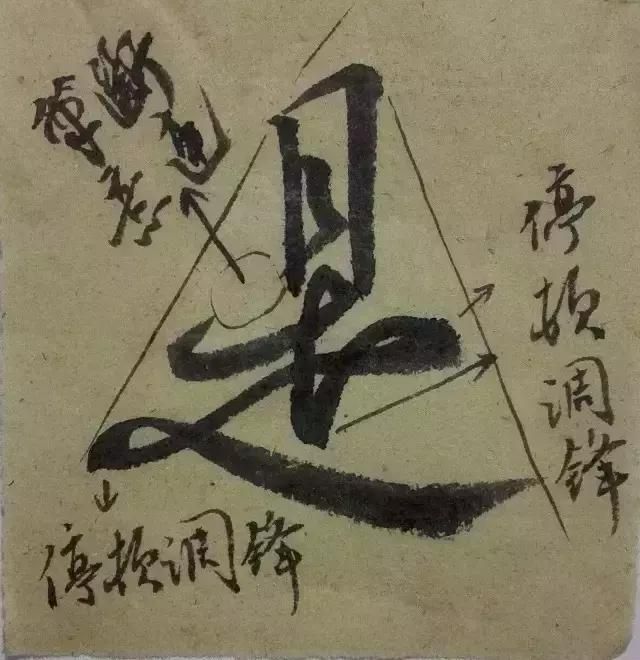 是
停顿调锋
停顿调锋